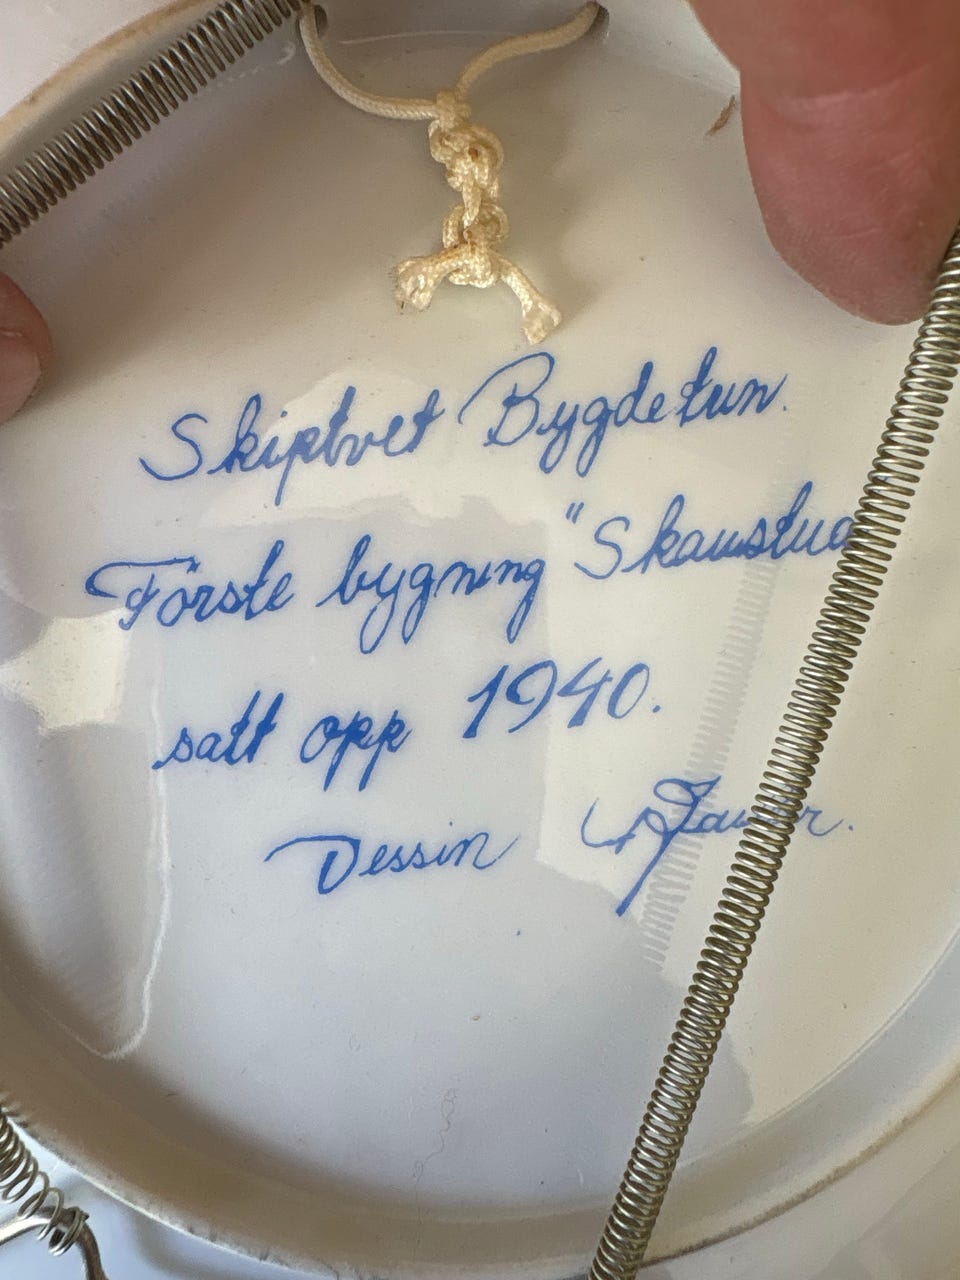 Skiptvet Bygdetun.
Første bygning "Skaustua
satt opp 1940.
Dessin